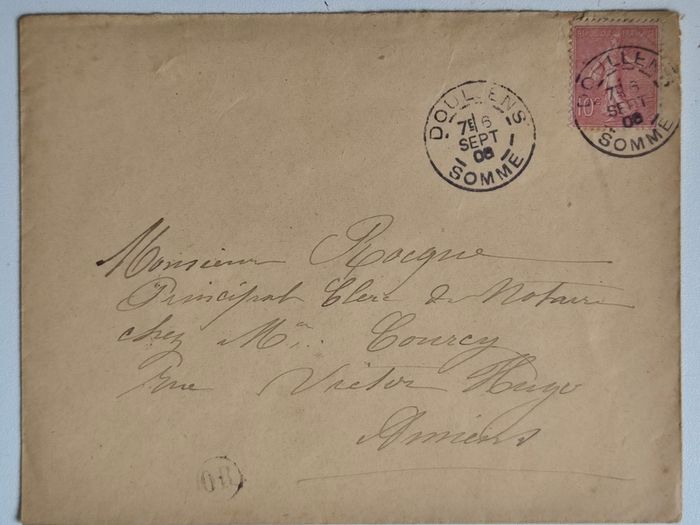 DOULLENS
7E 6
SEPT
06
SOMME
10c
DOULLENS
7E 6
SEPT
06
SOMME
Monsieur Rocque
Principal Clerc de Notaire
chez Me. Courcy
rue Victor Hugo
Amiens
OR